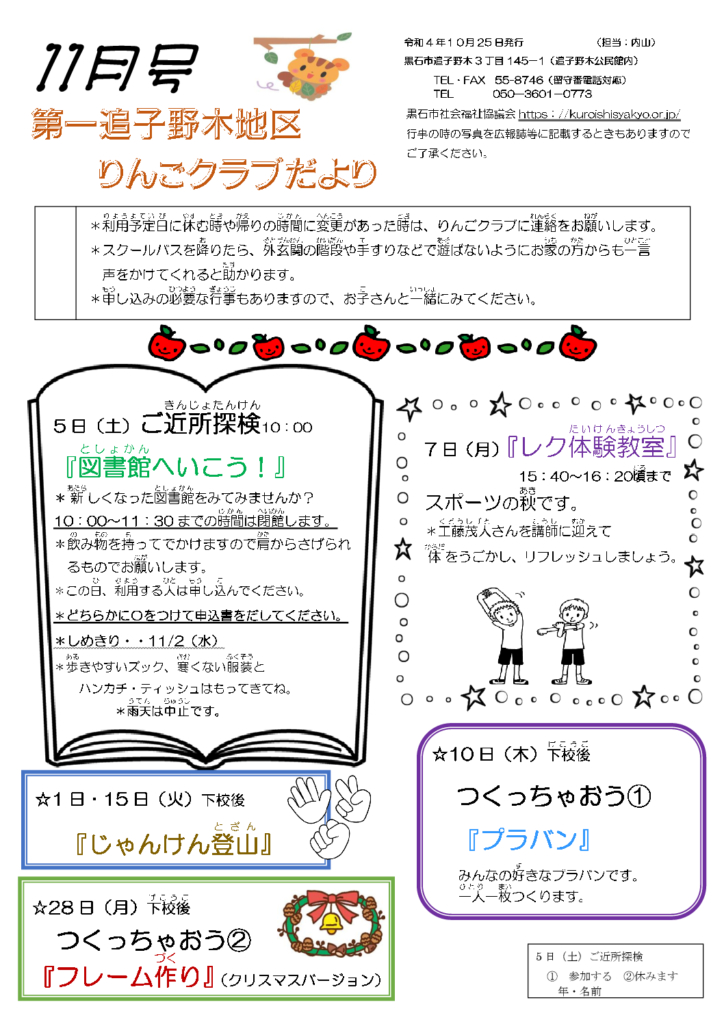 11月号
第一追子野木地区
りんごクラブだより
令和4年10月25日発行　（担当：内山）
黒石市追子野木3丁目145－1（追子野木公民館内）
TEL・FAX　55-8746（留守番電話対応）
TEL　050－3601－0773
黒石市社会福祉協議会 https：//kuroishisyakyo.or.jp/
行事の時の写真を広報誌等に記載するときもありますので
ご了承ください。
＊利用予定日に休む時や帰りの時間に変更があった時は、りんごクラブに連絡をお願いします。
＊スクールバスを降りたら、外玄関の階段や手すりなどで遊ばないようにお家の方からも一言
声をかけてくれると助かります。
＊申し込みの必要な行事もありますので、お子さんと一緒にみてください。
5日（土）ご近所探検10：00
『図書館へいこう！』
＊新しくなった図書館をみてみませんか？
10：00～11：30までの時間は閉館します。
＊飲み物を持ってでかけますので肩からさげられ
るものでお願いします。
＊この日、利用する人は申し込んでください。
＊どちらかに〇をつけて申込書をだしてください。
＊しめきり・・11/2（水）
＊歩きやすいズック、寒くない服装と
ハンカチ・ティッシュはもってきてね。
＊雨天は中止です。
7日（月）『レク体験教室』
15：40～16：20頃まで
スポーツの秋です。
＊工藤茂人さんを講師に迎えて
体をうごかし、リフレッシュしましょう。
☆10日（木）下校後
つくっちゃおう①
『プラバン』
みんなの好きなプラバンです。
一人一枚つくります。
☆1日・15日（火）下校後
『じゃんけん登山』
☆28日（月）下校後
つくっちゃおう②
『フレーム作り』（クリスマスバージョン）
5日（土）ご近所探検
①　参加する　②休みます
年・名前